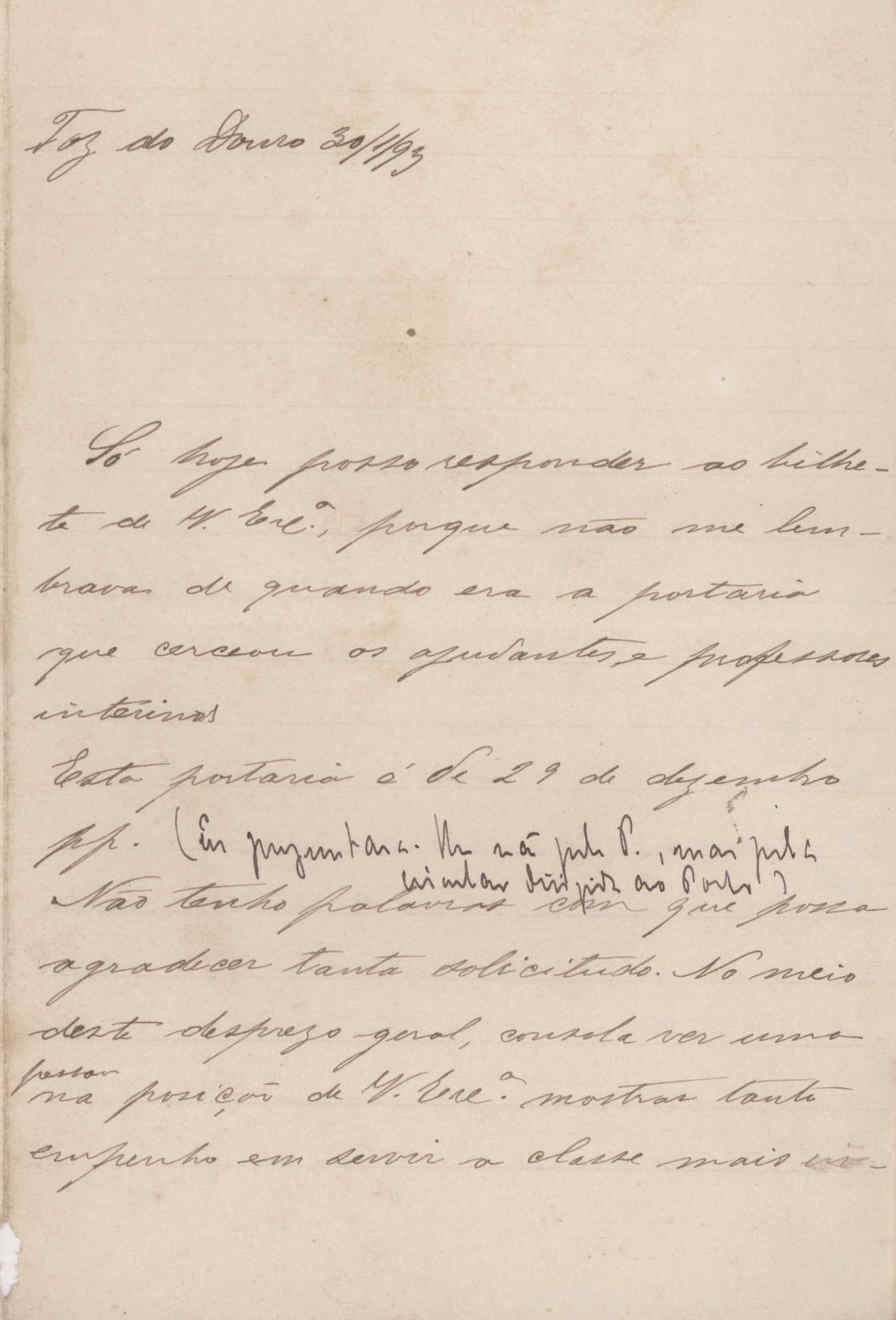 Foz do Douro 30/1/93
Só hoje posso responder ao bilhe-
te de V. Excª., porque não me lem-
brava de quando era a portaria
que cerceou os ajudantes e professores
interinos
Esta portaria é de 29 de dezembro
pp. (Eu perguntara-lhe não pela P., mas pela
circular dirigida ao Porto)
Não tenho palavras com que possa
agradecer tanta solicitude. No meio
deste desprezo geral, consola ver uma
pessoa
na posição de V. Excª. mostrar tanto
empenho em servir a classe mais